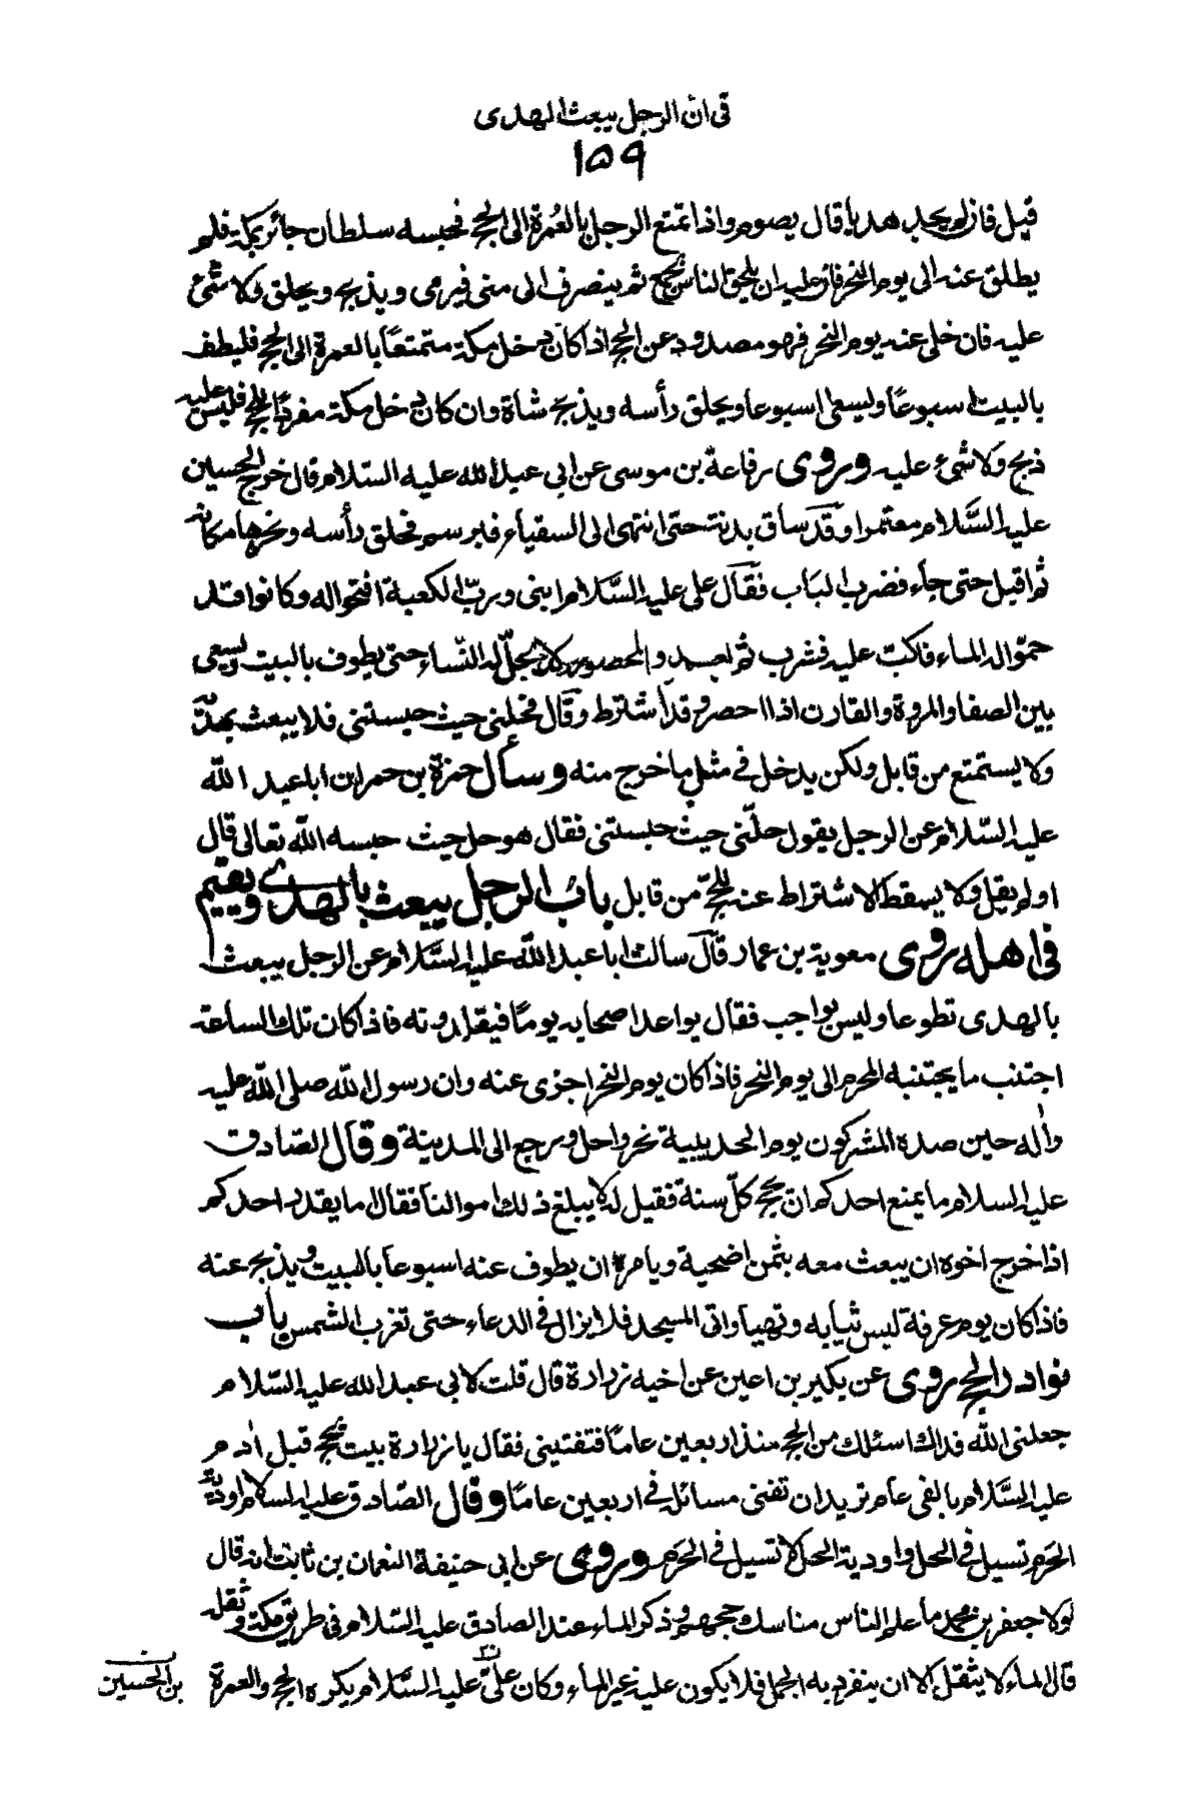 فی ان الرجل یبعث الهدی
١٥٩
قیل فان لم یجد هدیا قال یصوم واذا تمتع الرجل بالعُمرة الی الحج فحبسه سلطان جائر بمکة فلم
یطلق عنه الی یوم النحر فان علیه ان یلحق الناس بجمع ثم ینصرف الی منی فیرمی ویذبح ویحلق ولا شیٔ
علیه فان خلی عنه یوم النحر فهو مصدود عن الحج اذا کان دخل مکة متمتعًا بالعمرة الی الحج فلیطف
بالبیت اسبوعًا ولیسعی اسبوعا ویحلق رأسه ویذبح شاة وان کان دخل مکة مفردًا للحج فلیس علیه
ذبح ولا شیٔ علیه وروی رفاعة بن موسی عن ابی عبد الله علیه السّلام قال خرج الحسین
علیه السَّلام معتمرا وقد ساق بدنة حتی انتهی الی السقیاء فبرسم فحلق رأسه ونحرها مکانه
ثم اقبل حتی جاء فضرب الباب فقال علی علیه السَّلام ابنی وربّ الکعبة افتحوا له وکانوا قد
حمّوا له الماء فاکبّ علیه فشرب ثم لعمد والمحصور لا یحلّ له النّساء حتی یطوف بالبیت ویسعی
بین الصفا والمروة والقارن اذا احصر وقد اشترط وقال فحلنی حیث حبستنی فلا یبعث بهدیه
ولا یستمتع من قابل ولکن یدخل فی مثل ما خرج منه وسأل حمزة بن حمران ابا عبد الله
علیه السّلام عن الرجل یقول حلّنی حیث حبستنی فقال هو حل حیث حبسه الله تعالی قال
او لم یقل ولا یسقط الاشتراط عنه الحجّ من قابل باب الرجل یبعث بالهدی ویقیم
فی اهله روی معویة بن عمار قال سالت ابا عبد الله علیه السَّلام عن الرجل یبعث
بالهدی تطوعا ولیس بواجب فقال یواعد اصحابه یومًا فیقلدونه فاذا کان تلک الساعة
اجتنب ما یجتنبه المحرم الی یوم النحر فاذا کان یوم النحر اجزی عنه وان رسول الله صلی الله علیه
واٰله حین صده المشرکون یوم الحدیبیة نحر واحل ورجع الی المدینة وقال الصّادق
علیه السلام ما یمنع احدکم ان یحج کلّ سنة فقیل له لا یبلغ ذلک اموالنا فقال اما یقدر احدکم
اذا خرج اخوه ان یبعث معه بثمن اضحیة ویامره ان یطوف عنه اسبوعا بالبیت ویذبح عنه
فاذا کان یوم عرفة لبس ثیابه وتهیأ واتی المسجد فلا یزال فی الدعاء حتی تغرب الشمس باب
نوادر الحج روی عن بکیر بن اعین عن اخیه زرارة قال قلت لابی عبد الله علیه السّلام
جعلنی الله فداک اسئلک من الحج منذ اربعین عامًا فتفتینی فقال یا زرارة بیت یحج قبل اٰدم
علیه السَّلام بالفی عام ترید ان تفنی مسائله فی اربعین عامًا وقال الصّادق علیه السلام اودیة
الحَرم تسیل فی الحل واودیة الحل لا تسیل فی الحَرم وروی عن ابی حنیفة النعمان بن ثابت انه قال
لولا جعفر بن محمد ما علم الناس مناسک حجهم وذکر الماء عند الصادق علیه السّلام فی طریق مکة وثقله
قال الماء لا یثقل الا ان ینفرد به الجمل فلا یکون علیه غیر الماء وکان علیّ علیه السَّلام یکره الحج والعمرة
بن الحسین